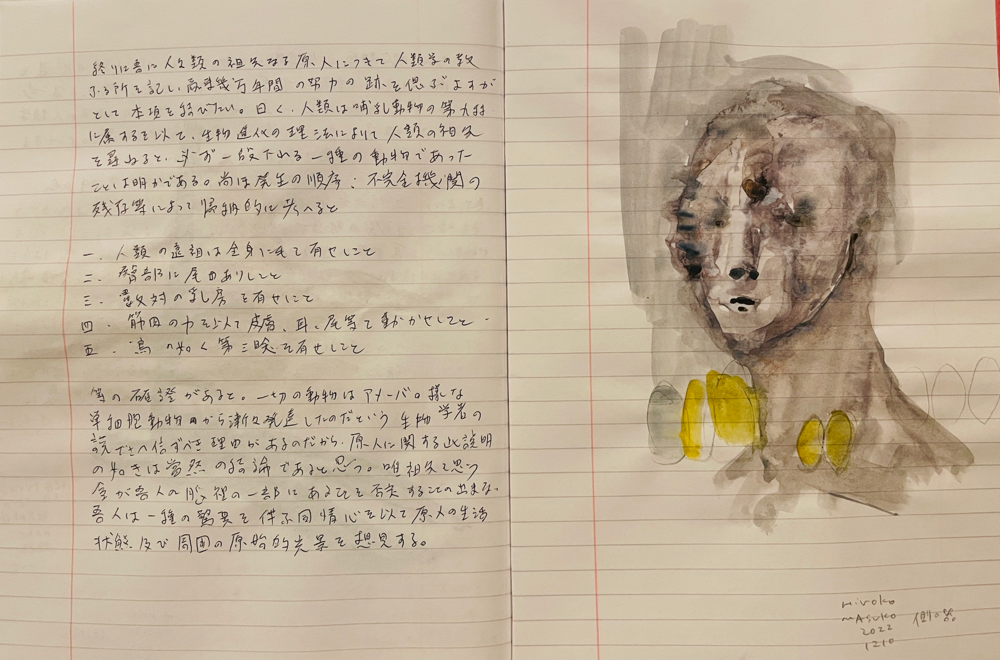 終りに吾に人類の祖先なる原人につきて人類学の教
ふる所を記し、幾万年間の努力の跡を偲ぶよすが
として本項を結びたい。曰く、人類は哺乳動物の第九
に属するを以て、生物進化の理法によりて人類の祖先
を尋ねると、必ず一段下れる一種の動物であった
ことは明かである。尚ほ発生の順序、不完全機関の
残存等によって帰納的に考へると
一、人類の遠祖は全身に毛を有せしこと
二、臀部に尾ありしこと
三、数対の乳房を有せしこと
四、筋肉の力を以て皮膚、耳、尾等を動かせしこと
五、鳥の如く第三瞼を有せしこと
等の確證があると。一切の動物はアメーバの様な
単細胞動物から漸々発達したのだという生物学者の
説さへ信ずべき理由があるのだから、原人に関する此説明
の如きは当然の結論であると思う。唯祖先を思う
念が吾人の脳裡の一部にあることを否定することの出来ない
吾人は一種の驚異を伴ふ同情心を以て原人の生活
状態及び周囲の原始的光景を想見する。
Hiroko
Masuko
2022
1210